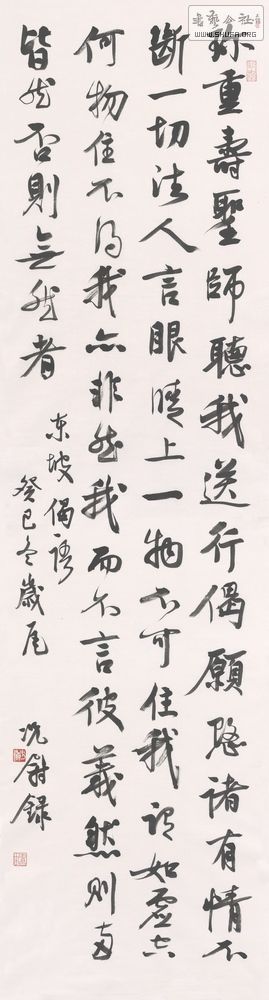 书艺公社
WWW.SHUFA.ORG
珎重壽聖師聽我送行偈願愍諸有情不
斷一切法人言眼睛上一物不可住我謂如虛空
何物住不得我亦非然我而不言彼義然則兩
皆然否則無然者
東坡偈語
癸巳冬歲尾
尉錄